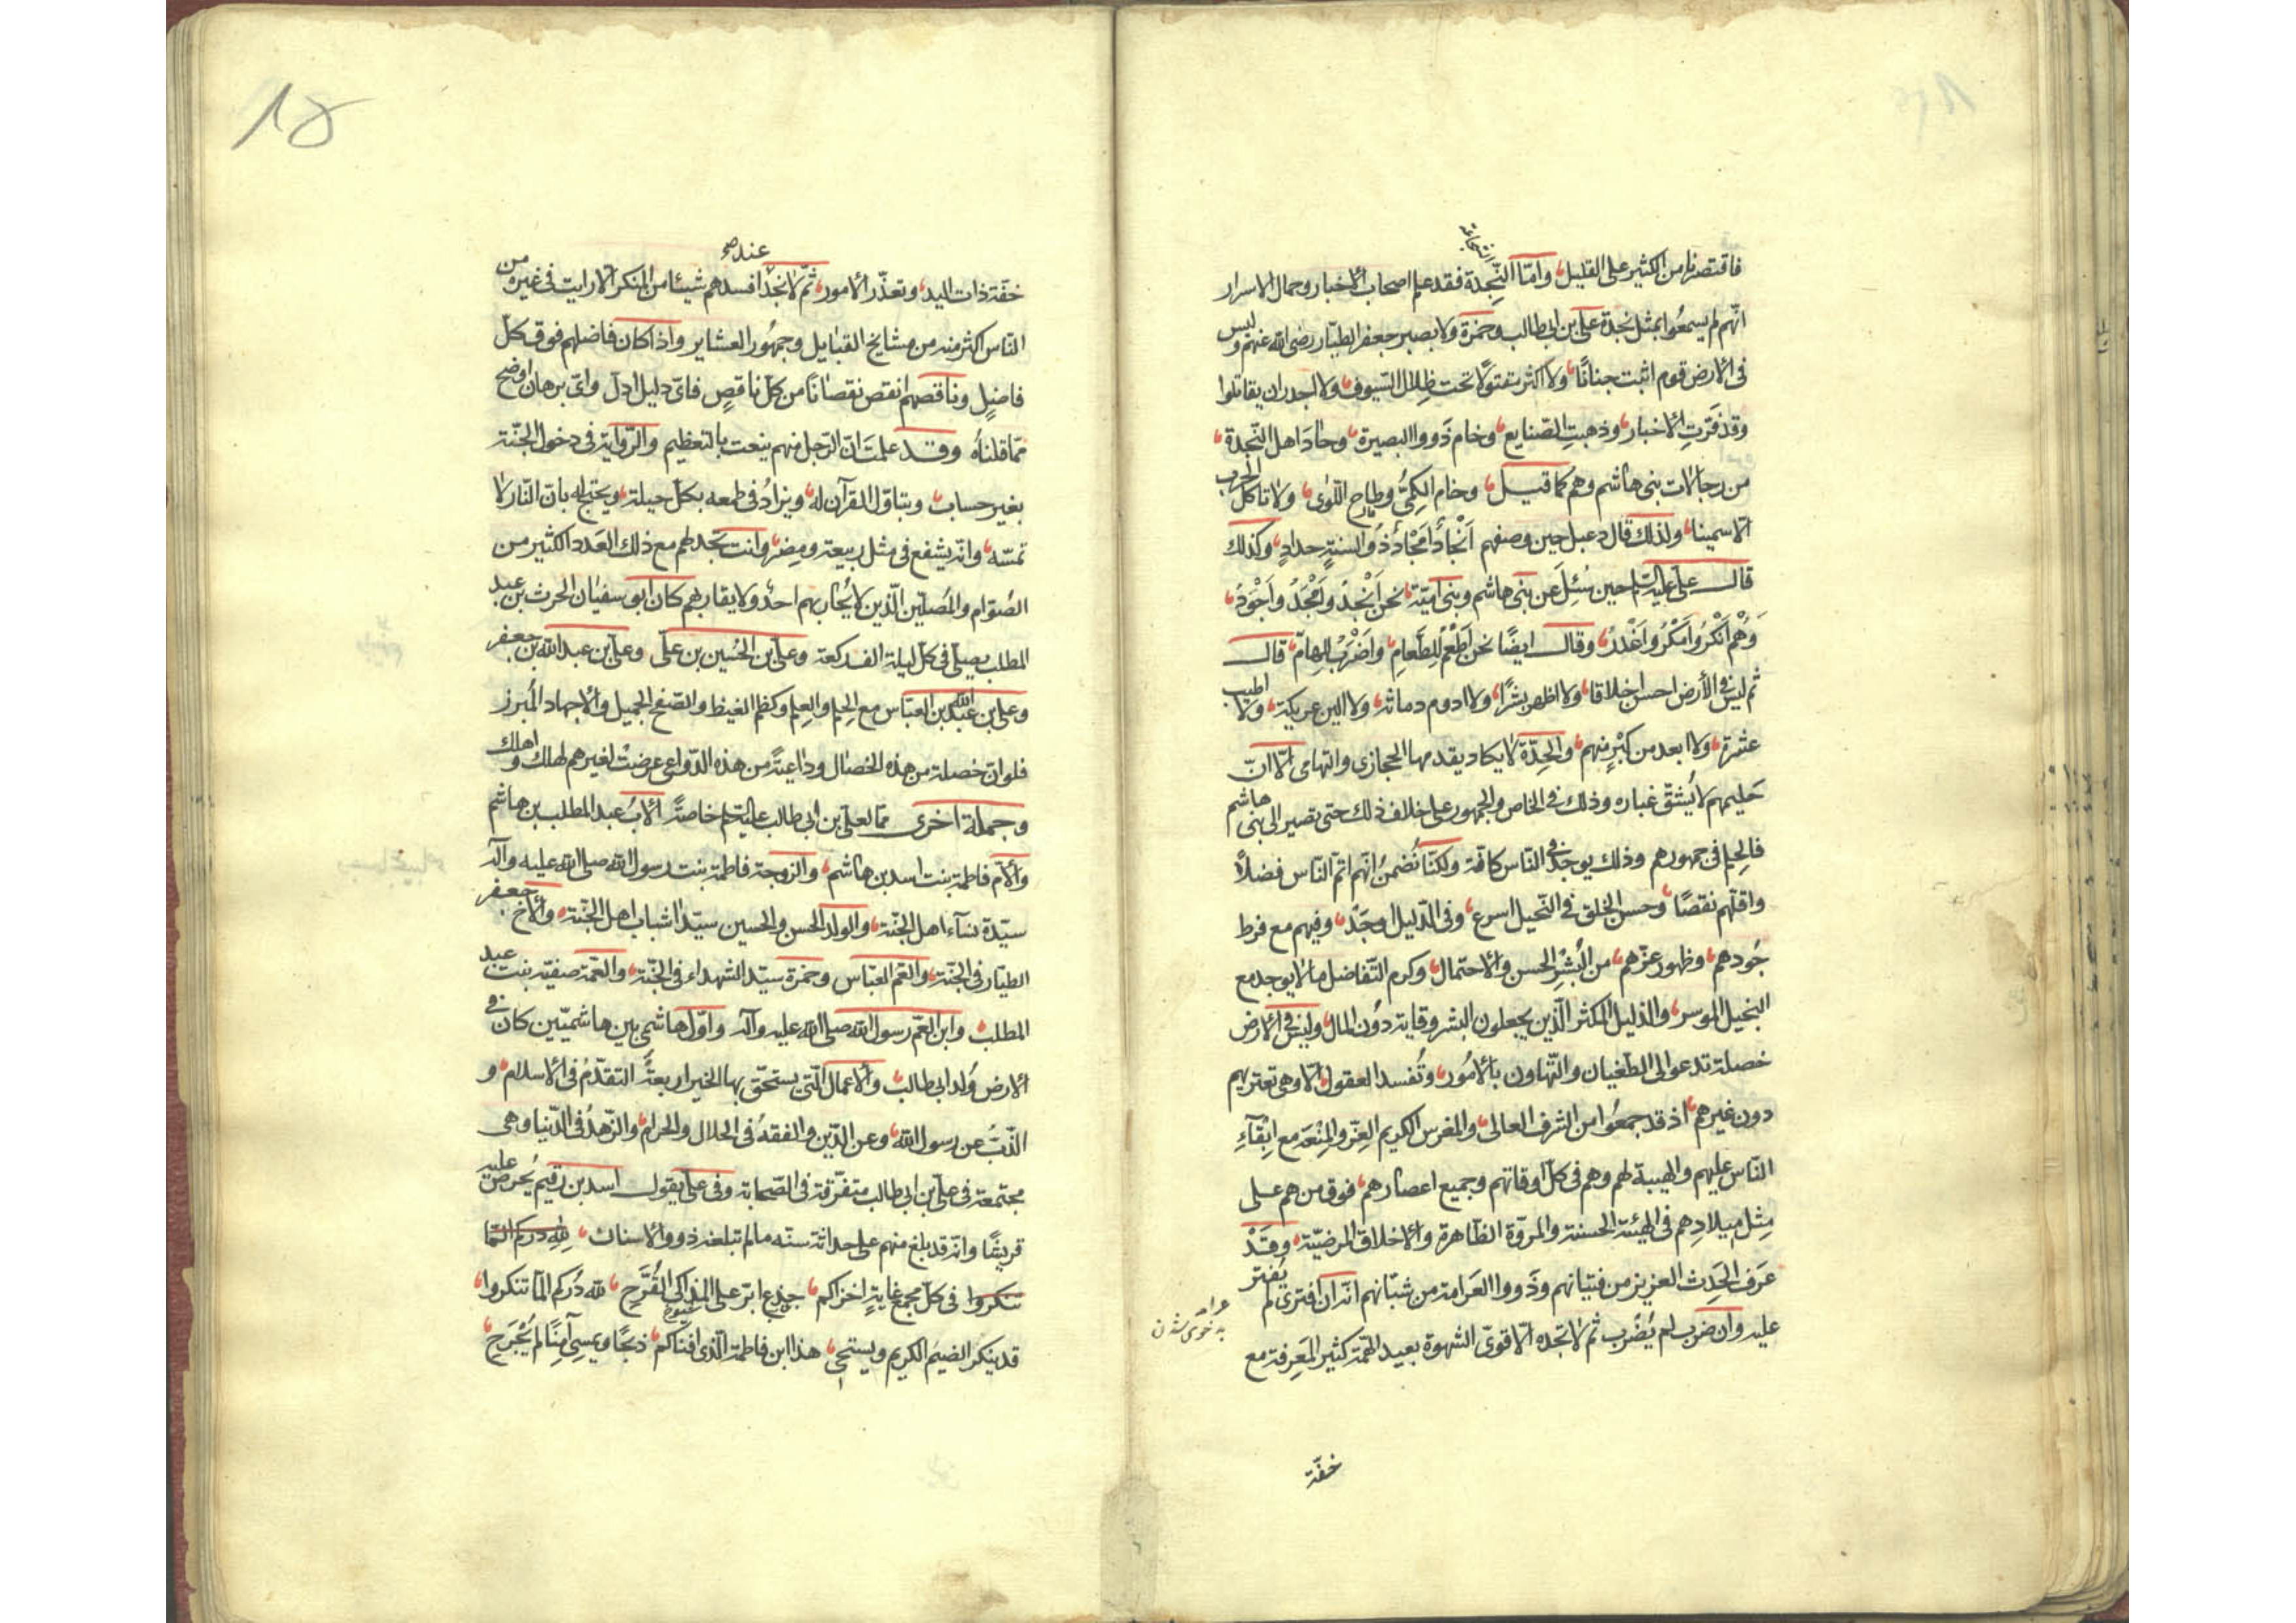 الشجاعة
فاقتصرنا من الكثير على القليل وامّا النّجدة فقد علم اصحاب الاخبار وحمال الاسرار
انّهم لم يسمعوا بمثل نجدة علي بن ابي طالب وحمزة ولا بصبر جعفر الطيّار رضى الله عنهم وليس
فى الارض قوم اثبت جنانًا ولا اكثر مقتولًا تحت ظلال السّيوف ولا اجدر ان يقاتلوا
وقد فرّت الاخيار وذهبت الصّنايع وخام ذَووا البصيرة وحاد اهل النّجدة
من رجالات بنى هاشم وهم كما قيل وخام الكمىّ وطاح اللّوى ولا تاكل الحرب
الّا سمينا ولذلك قال دعبل حين وصفهم اَنْجاد اَمْجاد ذوُ السنةٍ حدادٍ وكذلك
قال على عليه السلام حين سُئِلَ عن بنى هاشم وبنى اميّة نحن اَنْجَدُ واَمْجَدُ واَجْوَدُ
وَهُم اَنْكَرُ واَمْكَرُ واَغْدَرُ وقال ايضًا نحن اَطْعَمُ للطّعامِ واَضْرَبُ للهامّ قال
ثم ليس فى الأرض احسن اخلاقا ولا اظهر بشرًا ولا ادوم دماثة ولا الين عريكة ولا اطيب
عشرة ولا ابعد من كِبْرٍ منهم والحِدّة لا يكاد يقدمها الحجازى والتهامى الّا انّ
حَليمهم لا يُشقّ غباره وذلك فى الخاص والجمهور على خلاف ذلك حتى تصير الى بنى هاشم
فالحلم فى جمهورهم وذلك يوجد فى النّاس كافّة ولكنّا نُضمنُ انّهم اتم النّاس فضلًا
واقلّهم نقصًا وحسن الخلق فى البخيل اسرع وفى الذّليل اوجَدُ وفيهم مع فرط
جُودهم وظهور عزّهم من البُشْرِ الحسن والاحتمال وكرم التّفاضل ما لا يوجد مع
البخيل الموسر والذليل المكثر الّذين يجعلون البشر وقاية دوُن المال وليس فى الارض
خصلة تدعو الى الطّغيان والتّهاون بالامُور وتُفسد العقول الّا وهى تعتريهم
دون غيرهم اذ قد جمعُوا من الشرف العالى والمغرس الكريم العِزّ والمِنْعَة مع ابْقآءِ
النّاس عليهم والهيبة لهم وهم فى كلّ اوقاتهم وجميع اعصارهم فوق من هم على
مِثل ميلادِهم فى الهيئة الحسنة والمروّة الظّاهرة والاخلاق المرضيّة وقَدْ
عَرَفَ الحَدِث العزيز من فتيانهم وذَووا العَرامة من شبّانهم انّه ان افترى لم يُفْتَر
عليه وان ضرب لم يُضْرب ثم لا تجده الّا قوىّ الشهوة بعيد الهمّة كثير المَعرفة مع
عرامة
بدخوى شدن
خفّة
عند صح
خفّة ذات اليد وتعذّر الامور ثمّ لا تجد افسدهم شيئا من المنكر الّا رايت فى غيره من
النّاس اكثر منه من مشايخ القبايل وجمهُور العشاير واذا كان فاضلهم فوق كلّ
فاضلٍ وناقصهم انقص نقصانًا من كلّ ناقصٍ فاىّ دليل ادلّ واىّ برهان اوضح
ممّا قلناهُ وقد علمتَ انّ الرّجل منهم ينعت بالتعظيم والرّواية فى دخول الجنّة
بغير حساب ويتاوّل القرآن له ويزادُ فى طمعه بكلّ حيلة ويحتج له بانّ النّار لا
تمسّه وانّه يشفع فى مثل ربيعة ومضر وانت تجد لهم مع ذلك العَدد الكثير من
الصُوّام والمُصلّين الّذين لا يُجاريهم احدٌ ولا يقاربهم كان ابو سفيان الحرث بن عبد
المطلب يصلّى فى كلّ ليلة الف ركعة وعلى بن الحُسين بن على وعلى بن عبد الله بن جعفر
وعلى بن عبد الله بن العبّاس مع الحلم والعِلم وكظم الغيظ والصّفح الجميل والاجهاد المُبرز
فلو انّ خصلة من هذه الخصال وداعيةً من هذه الدّواعى عرضتْ لغيرهم لهلك واهلك
وجملة اخرى ممّا لعلى بن ابى طالب عليه السلام خاصّةً الابُ عبد المطلب بن هاشم
والامّ فاطمة بنت اسد بن هاشم والزوجة فاطمة بنت رسول الله صلى الله عليه وآله
سيّدة نسآء اهل الجنّة والولد الحسن والحسين سيّدا شباب اهل الجنّة والأخ جعفر
الطيّار فى الجنّة والعمّ العبّاس وحمزة سيّد الشهداء فى الجنّة والعمّة صفيّة بنت عبد
المطلب وابن العمّ رسول الله صلى الله عليه وآله واوّل هاشمى بين هاشميّين كان فى
الارض وُلد ابى طالب والاعمال الّتى يستحقّ بها الخير اربعةُ التقدّمُ فى الاسلام و
الذّبّ عن رسول الله وعن الدّين والفقهُ فى الحلال والحرام والزّهدُ فى الدّنيا وهى
مجتمعة فى علىّ بن ابى طالب متفرّقة فى الصّحابة وفى علىّ يقول اسد بن رقيم يُحرّض عليه
قريشًا وانّه قد بلغ منهم على حداثة سنّه ما لم تبلغه ذووا الاسنان لله درّكم المّا
تنكروا فى كلّ مجمع غايةٍ اخزاكم جذعٌ ابرّ على المذاكى القُرَّحِ لله درّكم المّا تنكروا
قد ينكر الضيمَ الكريم ويستحى هذا ابن فاطمة الّذى افناكم ذبحًا ويمسى آمنًا لم يُجْرَحِ